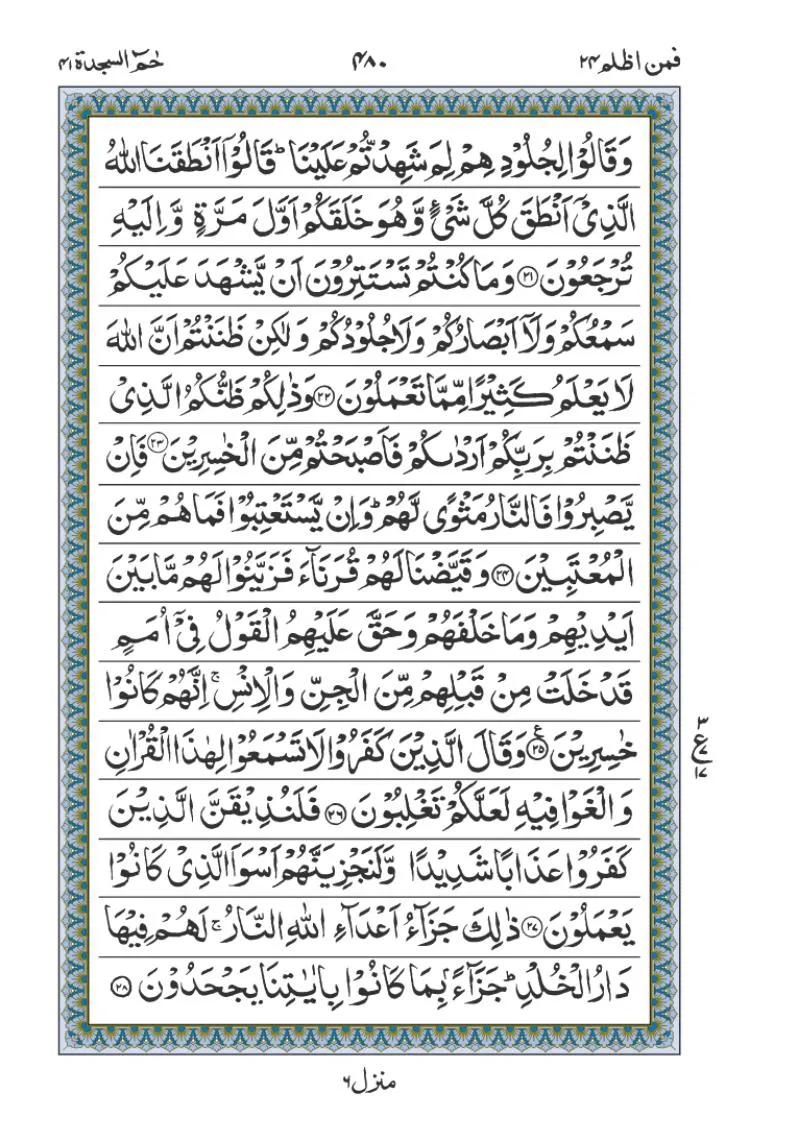 فمن اظلم ۲۴
۴۸۰
حٰمٓ السجدة ۴۱
وَقَالُوْا لِجُلُوْدِهِمْ لِمَ شَهِدْتُّمْ عَلَيْنَا ؕ قَالُوْۤا اَنْطَقَنَا اللّٰهُ
الَّذِىْۤ اَنْطَقَ كُلَّ شَىْءٍ وَّهُوَ خَلَقَكُمْ اَوَّلَ مَرَّةٍ وَّاِلَيْهِ
تُرْجَعُوْنَ ﴿۲۱﴾ وَمَا كُنْتُمْ تَسْتَتِرُوْنَ اَنْ يَّشْهَدَ عَلَيْكُمْ
سَمْعُكُمْ وَلَاۤ اَبْصَارُكُمْ وَلَا جُلُوْدُكُمْ وَلٰكِنْ ظَنَنْتُمْ اَنَّ اللّٰهَ
لَا يَعْلَمُ كَثِيْرًا مِّمَّا تَعْمَلُوْنَ ﴿۲۲﴾ وَذٰلِكُمْ ظَنُّكُمُ الَّذِىْ
ظَنَنْتُمْ بِرَبِّكُمْ اَرْدٰٮكُمْ فَاَصْبَحْتُمْ مِّنَ الْخٰسِرِيْنَ ﴿۲۳﴾ فَاِنْ
يَّصْبِرُوْا فَالنَّارُ مَثْوًى لَّهُمْ ؕ وَاِنْ يَّسْتَعْتِبُوْا فَمَا هُمْ مِّنَ
الْمُعْتَبِيْنَ ﴿۲۴﴾ وَقَيَّضْنَا لَهُمْ قُرَنَآءَ فَزَيَّنُوْا لَهُمْ مَّا بَيْنَ
اَيْدِيْهِمْ وَمَا خَلْفَهُمْ وَحَقَّ عَلَيْهِمُ الْقَوْلُ فِىْۤ اُمَمٍ
قَدْ خَلَتْ مِنْ قَبْلِهِمْ مِّنَ الْجِنِّ وَالْاِنْسِ ۚ اِنَّهُمْ كَانُوْا
خٰسِرِيْنَ ﴿۲۵﴾ ع وَقَالَ الَّذِيْنَ كَفَرُوْا لَا تَسْمَعُوْا لِهٰذَا الْقُرْاٰنِ
۳ ع ۷ ۱۷
وَالْغَوْا فِيْهِ لَعَلَّكُمْ تَغْلِبُوْنَ ﴿۲۶﴾ فَلَنُذِيْقَنَّ الَّذِيْنَ
كَفَرُوْا عَذَابًا شَدِيْدًا وَّلَنَجْزِيَنَّهُمْ اَسْوَاَ الَّذِىْ كَانُوْا
يَعْمَلُوْنَ ﴿۲۷﴾ ذٰلِكَ جَزَآءُ اَعْدَآءِ اللّٰهِ النَّارُ ۚ لَهُمْ فِيْهَا
دَارُ الْخُلْدِ ؕ جَزَآءًۢ بِمَا كَانُوْا بِاٰيٰتِنَا يَجْحَدُوْنَ ﴿۲۸﴾
منزل ۶